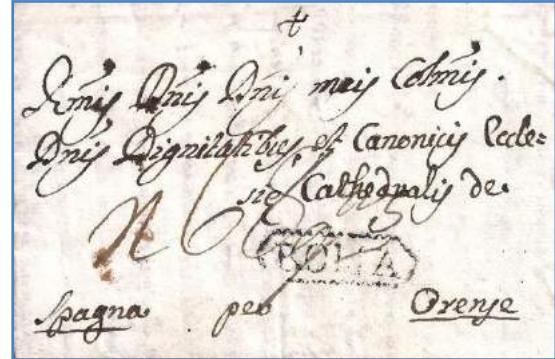 +
Rmis Dnis Dnis meis Colmis.
Dnis Dignitatibus et Canonicis Eccle=
sie Cathedralis de
ROMA
Spagna per Orense